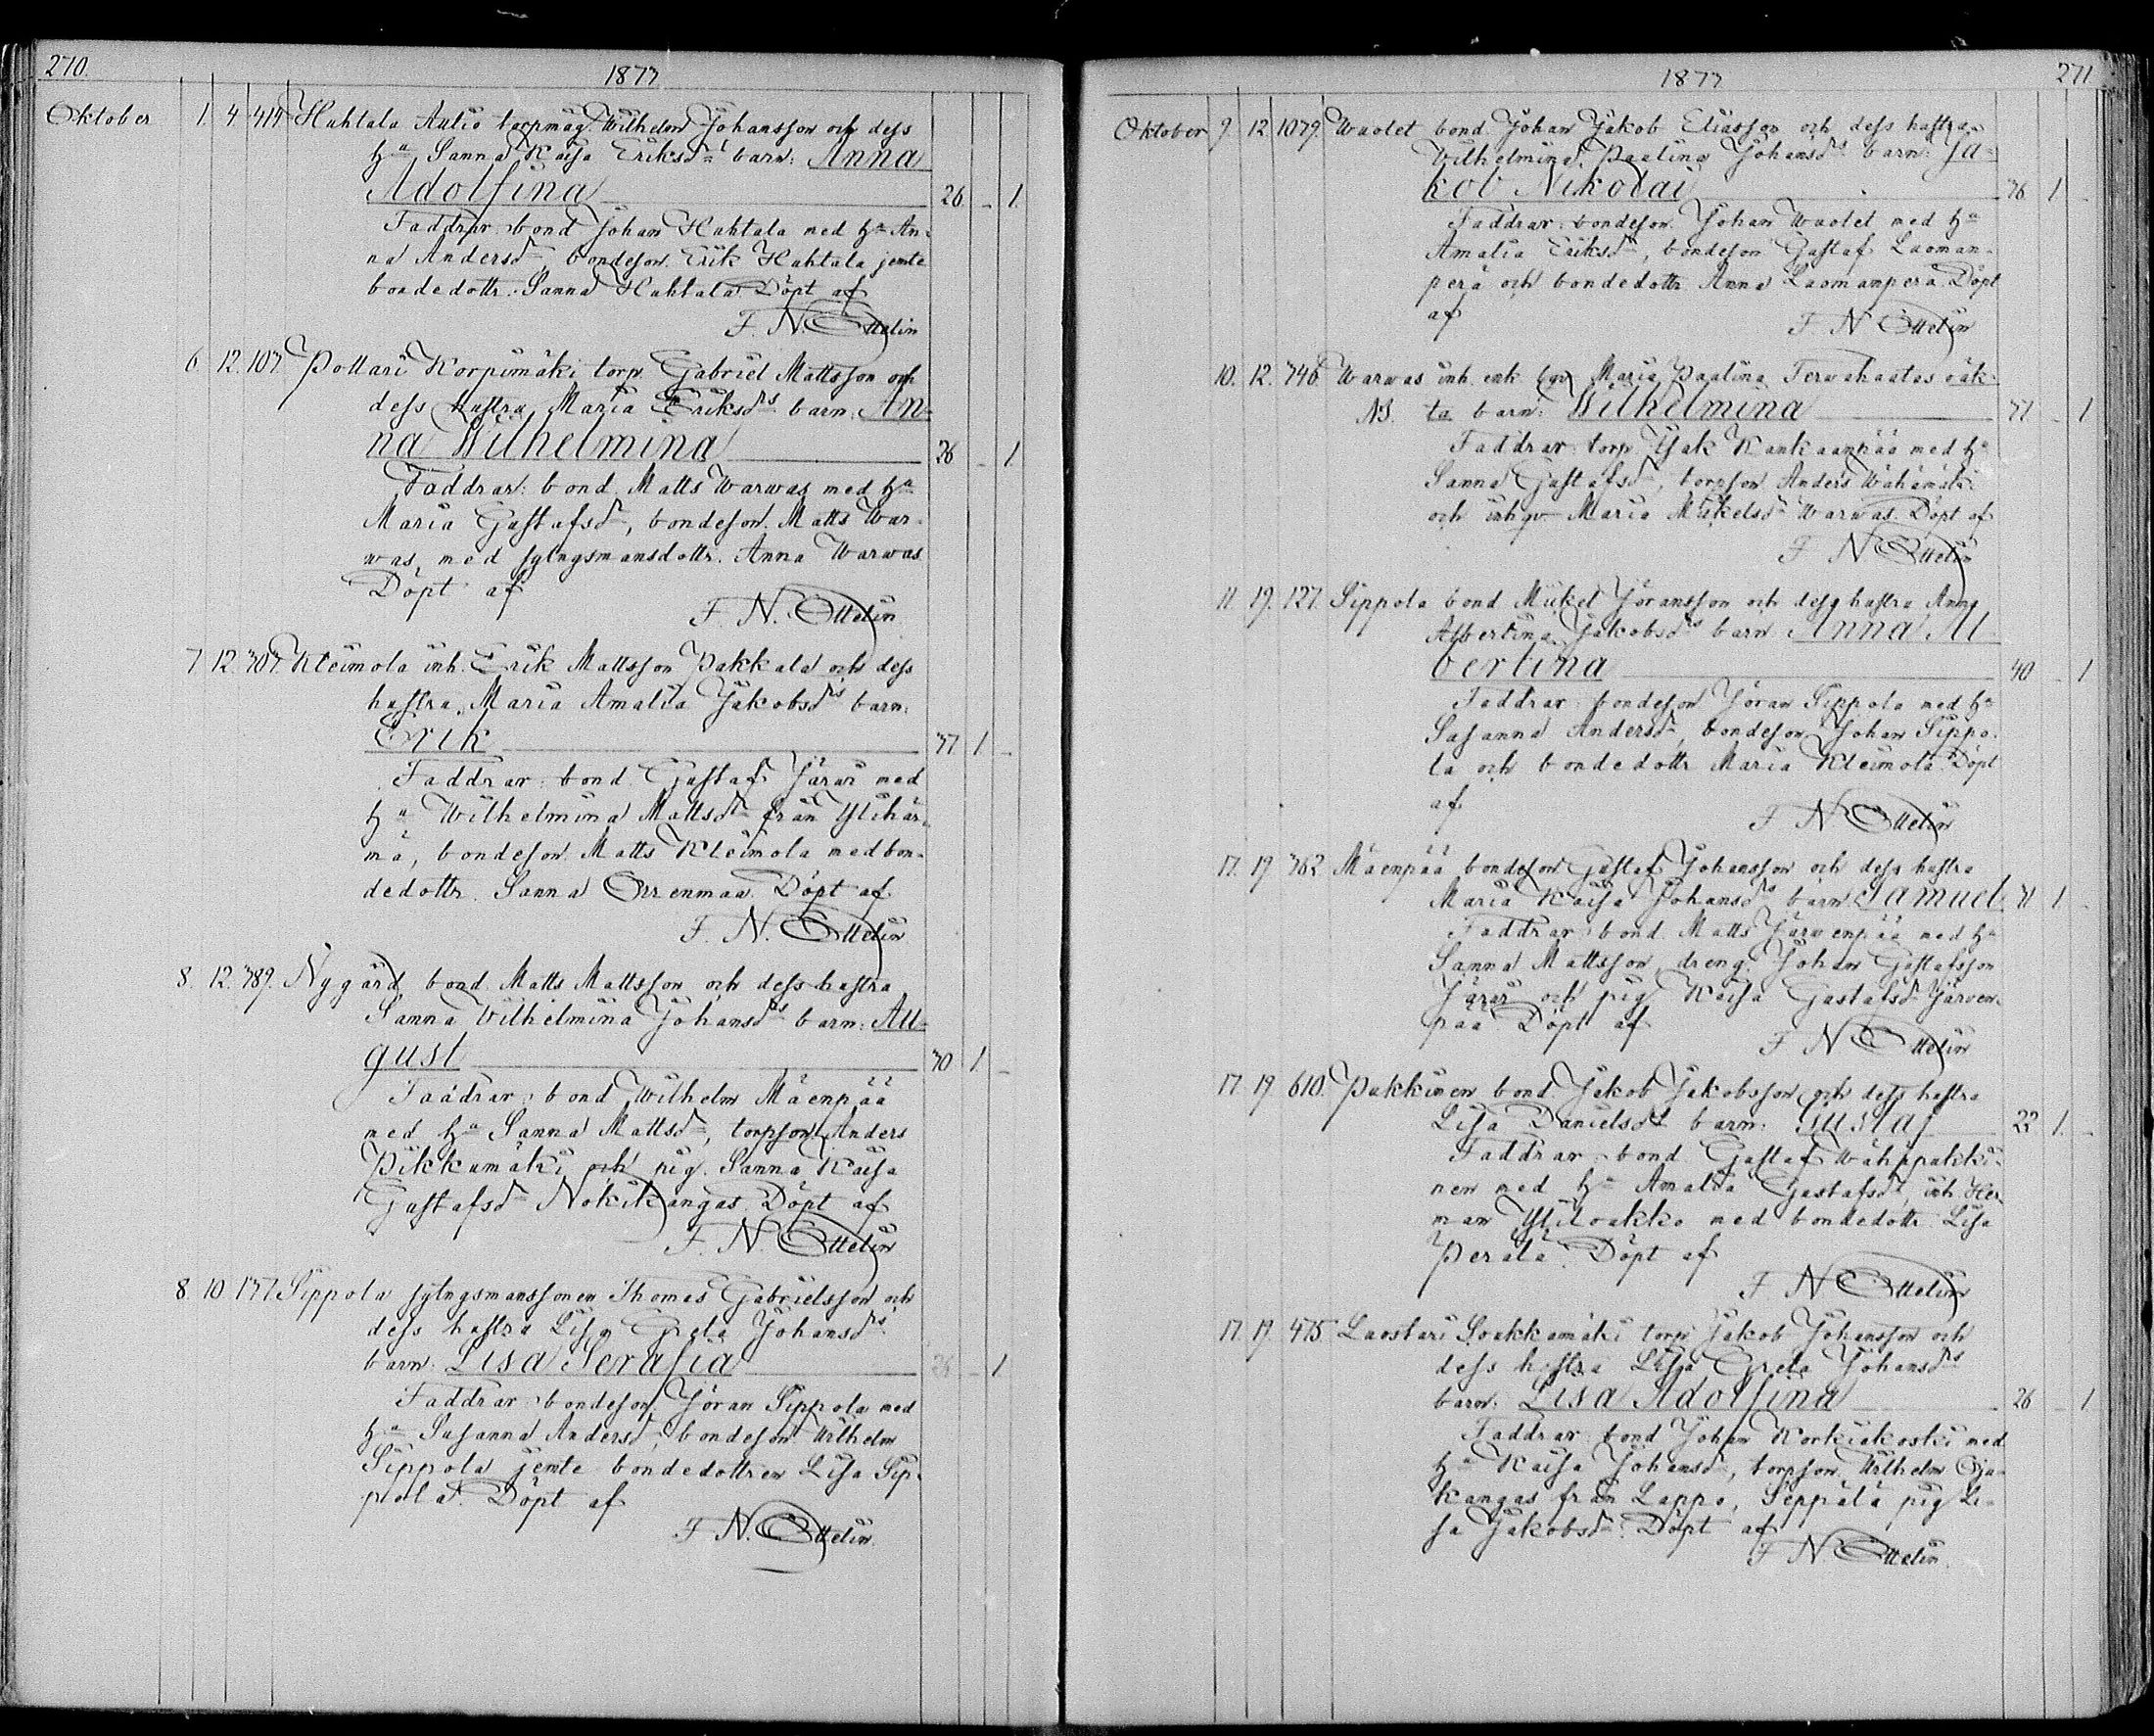 270.
1877
Oktober 1. 4. 414 Huhtala Aulio torpmåg. Wilhelm Johansson och dess
hu Sanna Kaisa Eriksds barn: Anna
Adolfina 26. - 1.
Faddrar: bond Johan Huhtala med hu An-
na Andersdr, bondeson. Erik Huhtala jemte
bondedottr. Sanna Huhtala Döpt af
F. N. Ottelin
6. 12. 107. Pottari Korpimäki torp. Gabriel Mattsson och
dess hustru Maria Eriksdrs barn: An-
na Wilhelmina 26 - 1.
Faddrar: bond. Matts Warwas med hu
Maria Gustafsdr, bondeson. Matts War-
was, med sytngsmansdottr. Anna Warwas
Döpt af
F. N. Ottelin
7. 12. 707. Kleimola inh. Erik Mattsson Pakkala och dess
hustru Maria Amalia Jakobsdrs barn:
Erik 37 1 -
Faddrar: bond. Gustaf Järär med
hu Wilhelmina Mattsdr från Ylihär-
mä, bondeson. Matts Kleimola med bon-
dedottr. Sanna Orrenmaa. Döpt af.
F. N. Ottelin
8. 12. 389. Nygård bond. Matts Mattsson och dess hustru
Sanna Wilhelmina Johansdrs barn: Au-
gust 30 1. -
Faddrar: bond Wilhelm Mäenpää
med hu Sanna Mattsdr, torpson Anders
Pikkumäki och pig. Sanna Kaisa
Gustafsdr Nokikangas. Döpt af
F. N. Ottelin
8. 10 137. Sippola sytngsmanssonen Thomas Gabrielsson och
dess hustru Lisa Greta Johansdrs
barn: Lisa Serafia 26 - 1
Faddrar: bondeson. Jöran Sippola med
hu Susanna Andersdr, bondeson Wilhelm
Sippola jemte bondedottren Lisa Sip-
pola. Döpt af
F. N. Ottelin
1877
271
Oktober 9. 12 1079. Wuolet bond. Johan Jakob Eliasson och dess hustru
Wilhelmina Paulina Johansdrs barn: Ja-
kob Nikolai 36 1 -
Faddrar: bondeson. Johan Wuolet med hu
Amalia Eriksdr, bondeson Gustaf Luoman-
perä och bondedottr Anna Luomanperä. Döpt
af F. N. Ottelin
10. 12. 746 Warwas inh. enk. Maria Paulina Terwahautas oäk-
ta barn: Wilhelmina 37 - 1
Faddrar: torp. Jak Kankaanpää med hu
Sanna Gustafsdr, torpson Anders Wähämäki
och inhqv. Maria Mikelsdr Warwas. Döpt af
F. N. Ottelin
11. 19. 127. Sippola bond Mikel Jöransson och dess hustru Anna
Albertina Jakobsdrs barn Anna Al
bertina 40 - 1
Faddrar: bondeson Jöran Sippola med hu
Susanna Andersdr, bondeson Johan Sippo-
la och bondedottr Maria Kleimola. Döpt
af.
F. N. Ottelin
17. 19 362 Mäenpää bondeson Gustaf Johansson och dess hustru
Maria Kaisa Johansdrs barn Samuel 31 1 -
Faddrar: bond. Matts Järwenpää med hu
Sanna Mattsson, dreng. Johan Gustafsson
Järär och pig. Kaisa Gustafsdr Järwen-
pää. Döpt af
F. N. Ottelin
17. 19. 610. Pukkinen bond. Jakob Jakobsson och dess hustru
Lisa Danielsds barn: Gustaf 22 1. -
Faddrar: bond. Gustaf Wähäpukki-
nen med hu Amalia Gustafsdr, inh. Her-
man Yliluokko med bondedottr. Lisa
Perälä. Döpt af
F. N. Ottelin
17. 19. 475 Luostari Soukkamäki torp. Jakob Johansson och
dess hustru Lisa Greta Johansdrs
barn: Lisa Adolfina 26 - 1
Faddrar: bond Johan Korkiakoski med
hu Kaisa Johansdr, torpson. Wilhelm Oja-
kangas från Lappo, Seppälä pig Li-
sa Jakobsdr. Döpt af
F. N. Ottelin